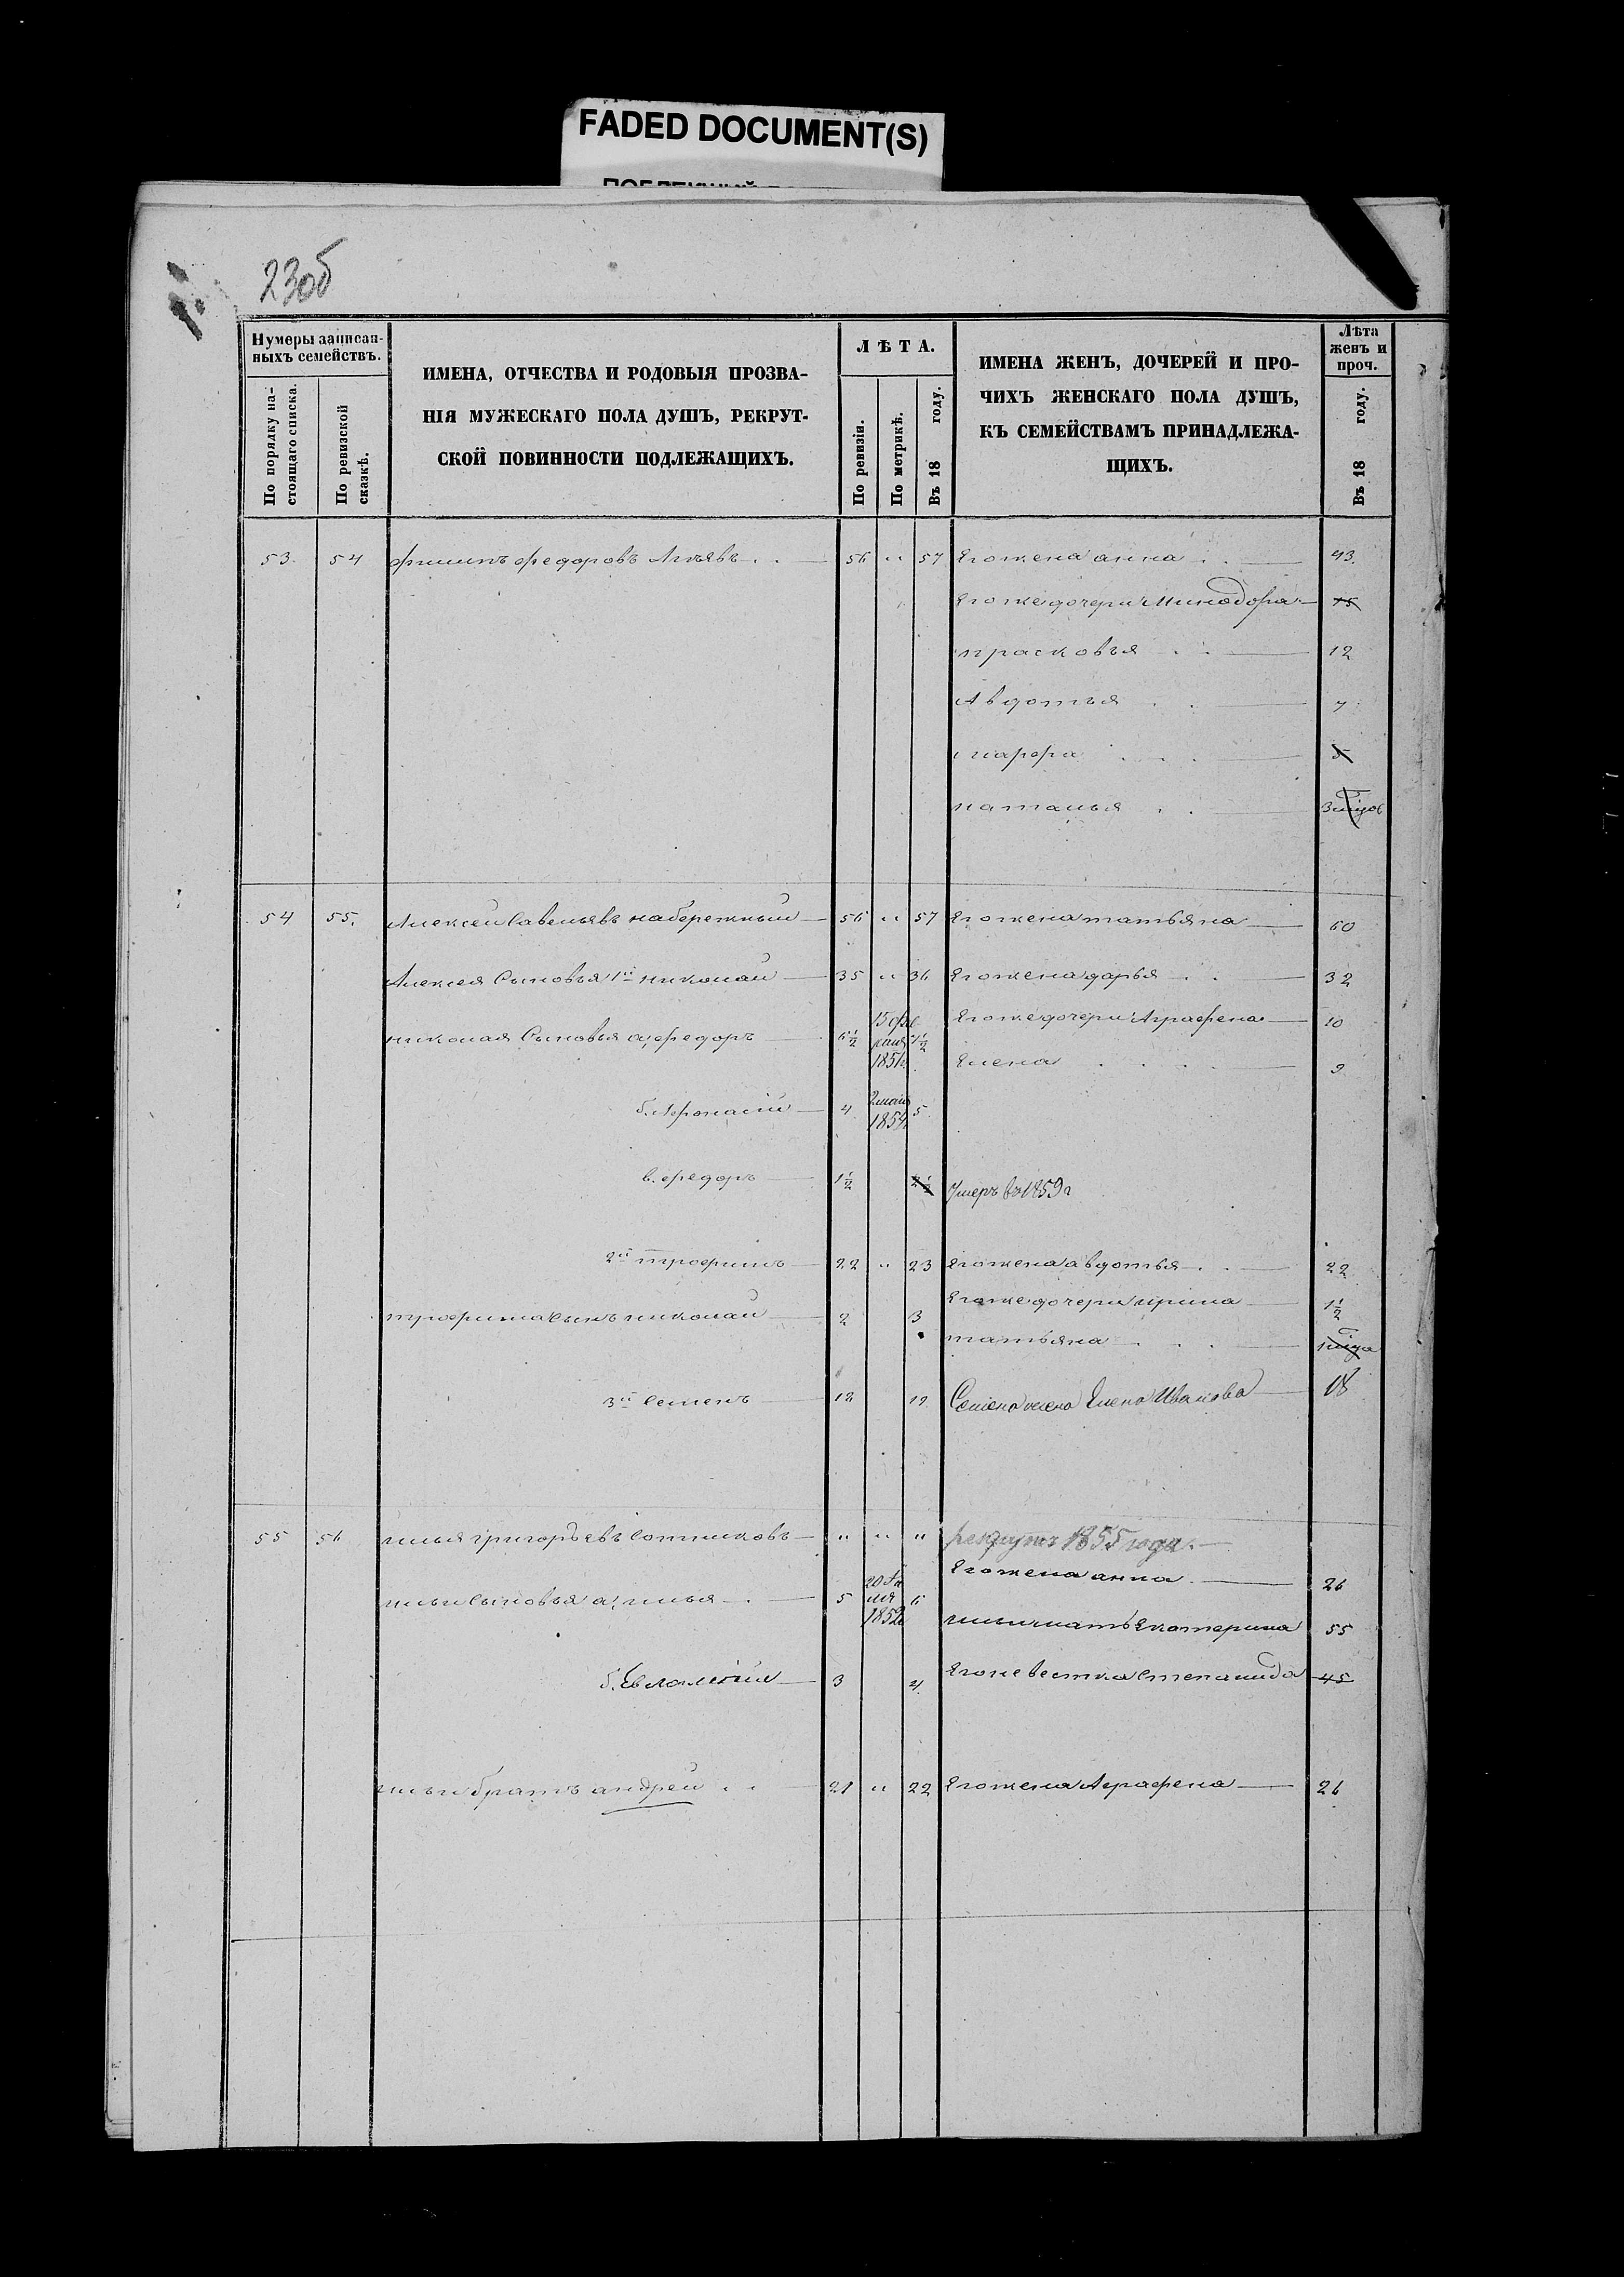 FADED DOCUMENT(S)
230б
Нумеры записан-
ныхъ семействъ.
По порядку на-
стоящаго списка.
По ревизской
сказкѣ.
ИМЕНА, ОТЧЕСТВА И РОДОВЫЯ ПРОЗВА-
НІЯ МУЖЕСКАГО ПОЛА ДУШЪ, РЕКРУТ-
СКОЙ ПОВИННОСТИ ПОДЛЕЖАЩИХЪ.
ЛѢТА.
По ревизіи.
По метрикѣ.
Въ 18 году.
ИМЕНА ЖЕНЪ, ДОЧЕРЕЙ И ПРО-
ЧИХЪ ЖЕНСКАГО ПОЛА ДУШЪ,
КЪ СЕМЕЙСТВАМЪ ПРИНАДЛЕЖА-
ЩИХЪ.
Лѣта
женъ и
проч.
Въ 18 году.
53. 54 филипъ федоровъ 56 " 57 Его жена анна 43.
Его же дочери Минодора 15
прасковья 12
Авдотья 7
5
наталья
54 55. Алексей Савельевъ набережный 56 " 57 Его жена татьяна 60
Алексея Сыновья 1й николай 35 " 36 Его жена дарья 32
николая Сыновья а, федоръ 6½ 15 1851 7½ Его же дочери Аграфена 10
Елена 9
б. Афонасій 4 2 мая 1854 5
в. федоръ 1½ 2½ Умеръ въ 1859 г
2й трофимъ 22 " 23 Его жена авдотья 22
трофима сынъ николай 2 3 Его же дочери ирина 1½
татьяна
3й семенъ 12 12 Семена жена Елена Иванова 18
55 56 илья григорьевъ Сотниковъ " " " рекрутъ 1855 года.
Его жена анна 26
ильи сыновья а, илья 5 20 1852 6
ильи мать Екатерина 55
б. 3 4 Его невестка степанида 45
ильи братъ андрей 21 " 22 Его жена Аграфена 26